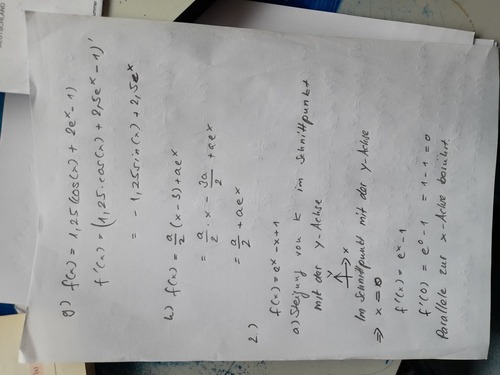 g) f(x) = 1,25(cos(x) + 2e^x - 1)
f'(x) = (1,25·cos(x) + 2,5e^x - 1)'
= -1,25sin(x) + 2,5e^x
h) f(x) = a/2 (x - 3) + ae^x
= a/2 · x - 3a/2 + ae^x
= a/2 + ae^x
2.)
f(x) = e^x - x + 1
a) Steigung von K im Schnittpunkt
mit der y-Achse
y x
Im Schnittpunkt mit der y-Achse
⇒ x = 0
f'(x) = e^x - 1
f'(0) = e^0 - 1 = 1 - 1 = 0
Parallele zur x-Achse berührt.